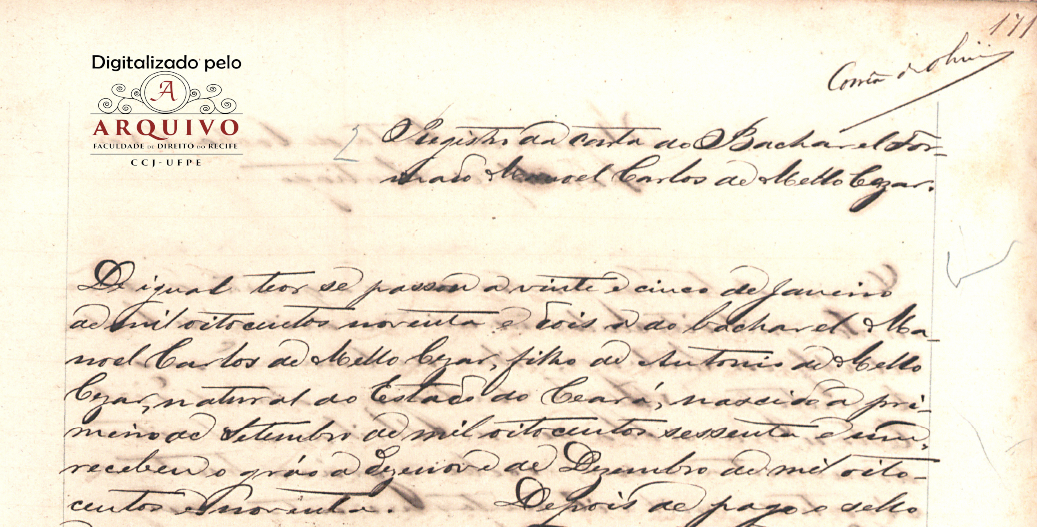 171
Corrêa de Oliv
Digitalizado pelo
A
ARQUIVO
FACULDADE DE DIREITO DO RECIFE
CCJ-UFPE
Registro da carta do Bacharel For-
mado Manoel Carlos de Mello Cezar.
De igual teor se passou a vinte e cinco de Janeiro
de mil oitocentos noventa e dois a do bacharel Ma-
noel Carlos de Mello Cezar, filho de Antonio de Mello
Cezar, natural do Estado do Ceará, nascido a pri-
meiro de Setembro de mil oitocentos sessenta e um;
recebeu o gráo a dezenove de Dezembro de mil oito-
centos e noventa. Depois de pago o sello